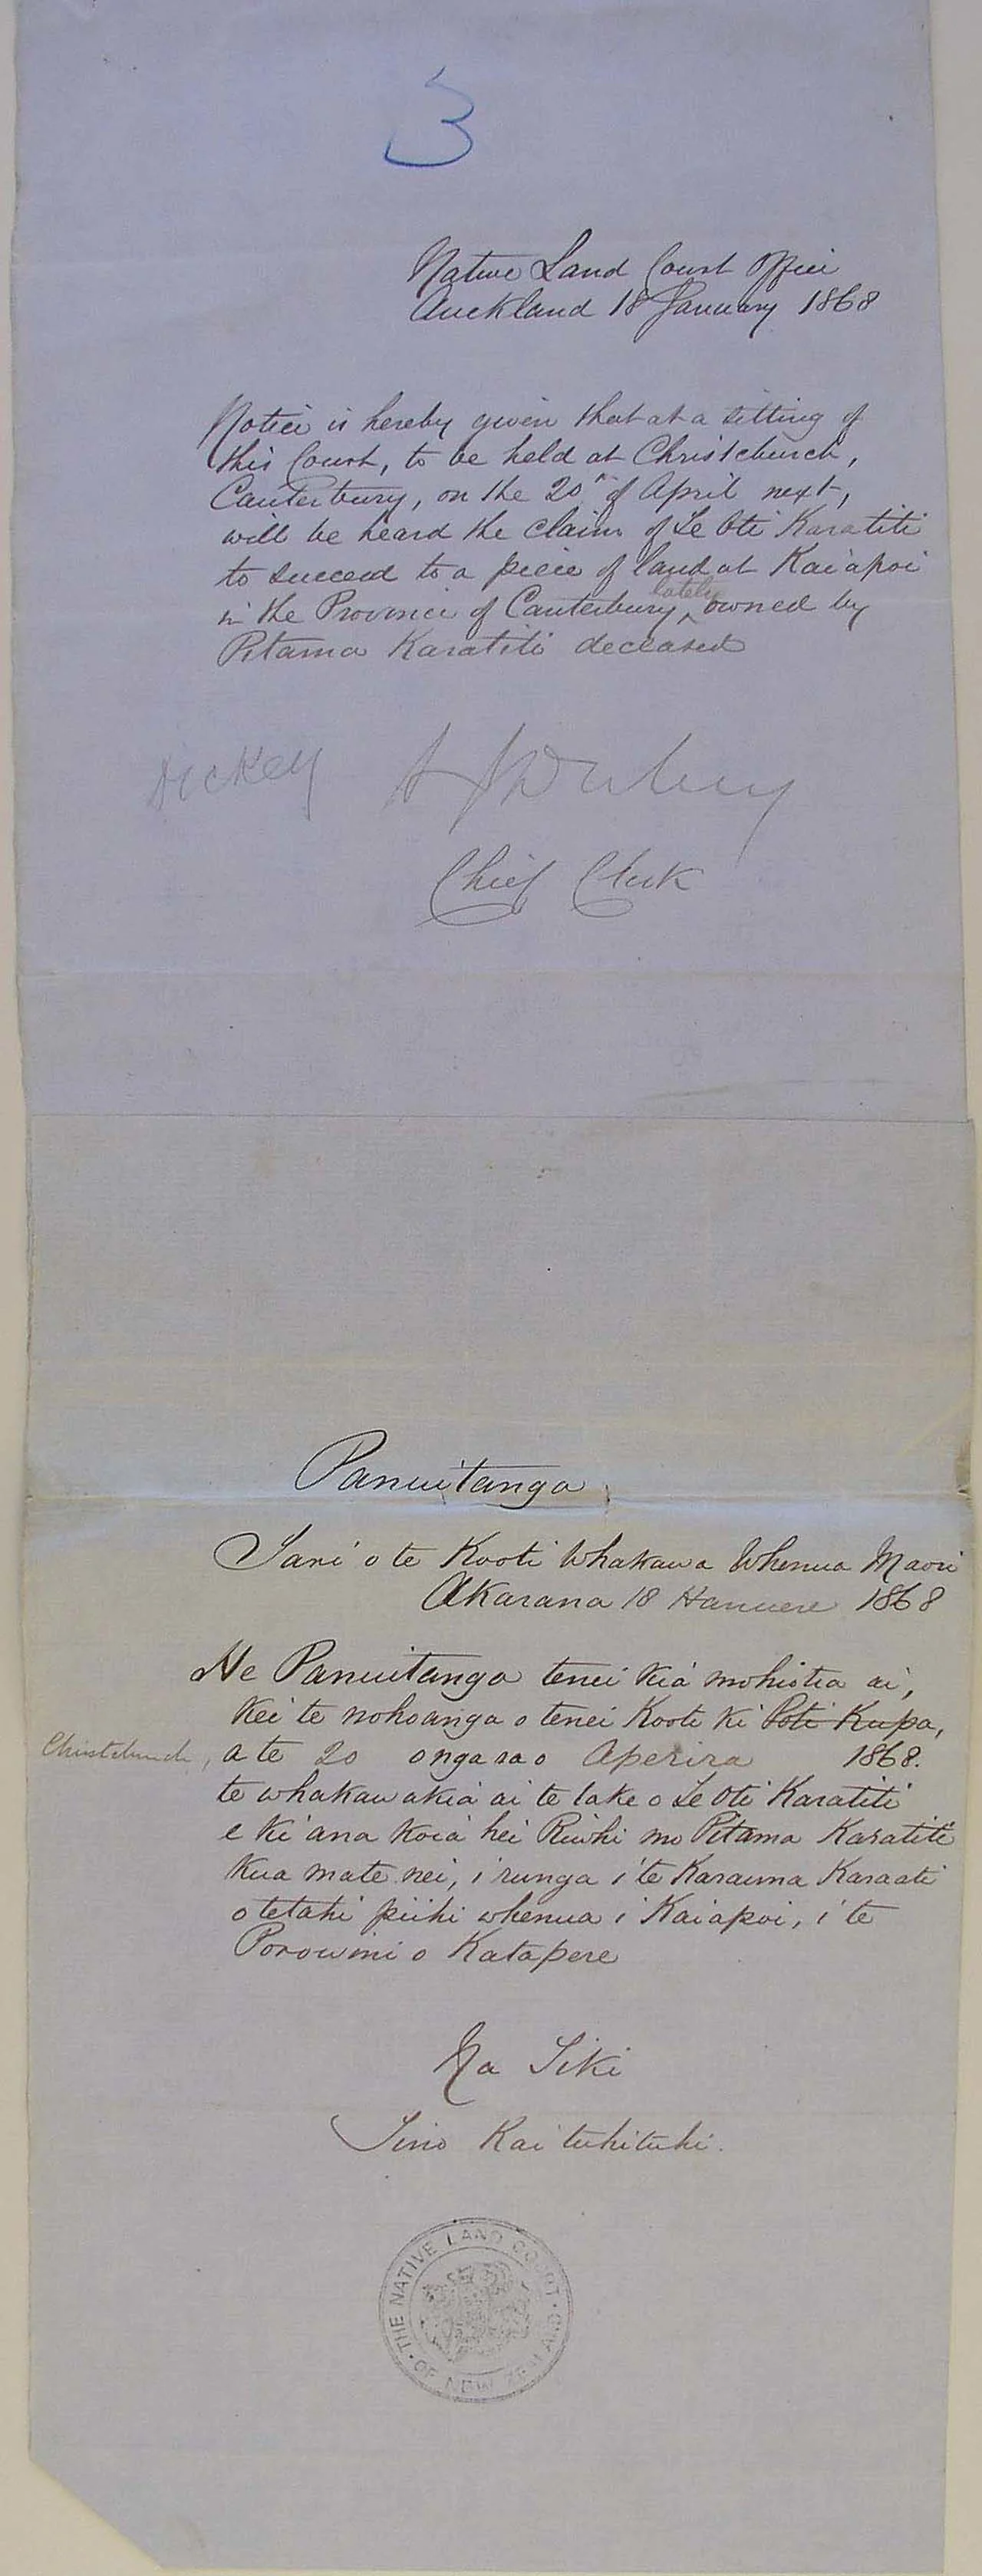 3
Native Land Court Office
Auckland 18 January 1868
Notice is hereby given that at a sitting of
this Court, to be held at Christchurch,
Canterbury, on the 20th of April next,
will be heard the claim of Te Oti Karatiti
to succeed to a piece of land at Kaiapoi
in the Province of Canterbury, lately owned by
Pitama Karatiti deceased
Dickey
Chief Clerk
Panuitanga
Tari o te Kooti Whakawa Whenua Maori
Akarana 18 Hanuere 1868
He Panuitanga tenei kia mohiotia ai,
kei te nohoanga o tenei Kooti ki Poti Kupa,
Christchurch, a te 20 o nga ra o Aperira 1868.
te whakawakia ai te take o Te Oti Karatiti
e ki ana koia hei Riwhi mo Pitama Karatiti
kua mate nei, i runga i te Karauna Karaati
o tetahi piihi whenua i Kaiapoi, i te
Porowini o Katapere
Na Tiki
Tino Kai tuhituhi.
THE NATIVE LAND COURT OF NEW ZEALAND